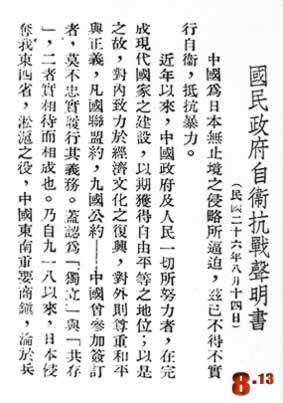 國民政府自衞抗戰聲明書
(民國二十六年八月十四日)
中國爲日本無止境之侵略所逼迫，茲已不得不實
行自衞，抵抗暴力。
近年以來，中國政府及人民一切所努力者，在完
成現代國家之建設，以期獲得自由平等之地位；以是
之故，對內致力於經濟文化之復興，對外則尊重和平
與正義，凡國聯盟約，九國公約——中國曾參加簽訂
者，莫不忠實履行其義務。蓋認爲「獨立」與「共存
」，二者實相待而相成也。乃自九一八以來，日本侵
奪我東四省，淞滬之役，中國東南重要商鎭，淪於兵
8.13